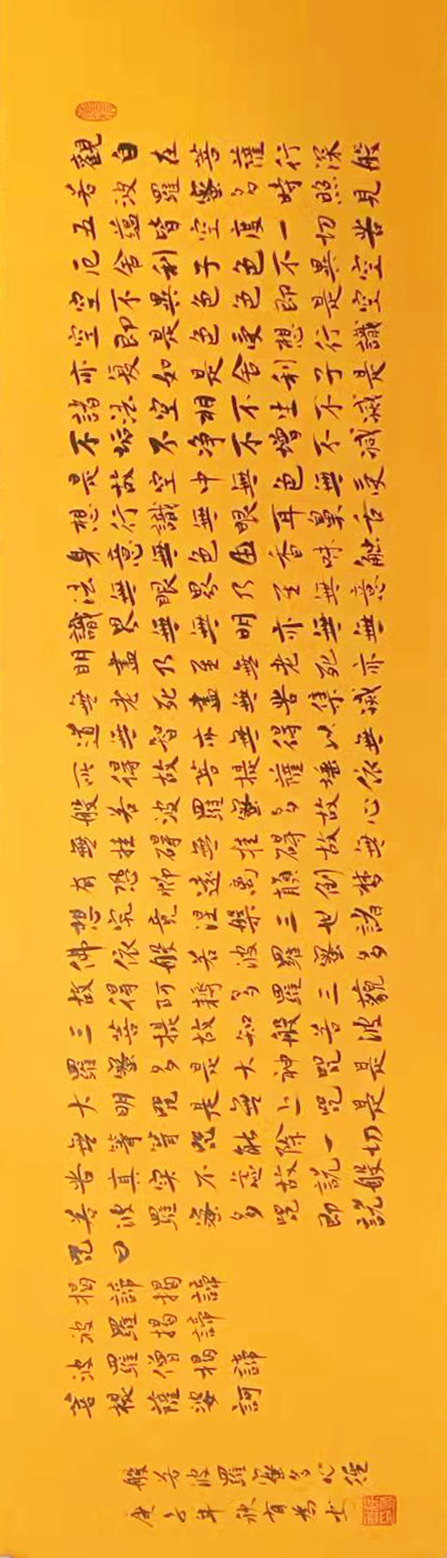 觀自在菩薩行深般
若波羅蜜多時照見
五蘊皆空度一切苦
厄舍利子色不異空
空不異色色即是空
空即是色受想行識
亦復如是舍利子是
諸法空相不生不滅
不垢不淨不增不減
是故空中無色無受
想行識無眼耳鼻舌
身意無色聲香味觸
法無眼界乃至無意
識界無無明亦無無
明盡乃至無老死亦
無老死盡無苦集滅
道無智亦無得以無
所得故菩提薩埵依
般若波羅蜜多故心
無罣礙無罣礙故無
有恐怖遠離顛倒夢
想究竟涅槃三世諸
佛依般若波羅蜜多
故得阿耨多羅三藐
三菩提故知般若波
羅蜜多是大神咒是
大明咒是無上咒是
無等等咒能除一切
苦真實不虛故說般
若波羅蜜多咒即說
咒曰
揭諦揭諦
波羅揭諦
波羅僧揭諦
菩提薩婆訶
般若波羅蜜多心經
庚子年秋書